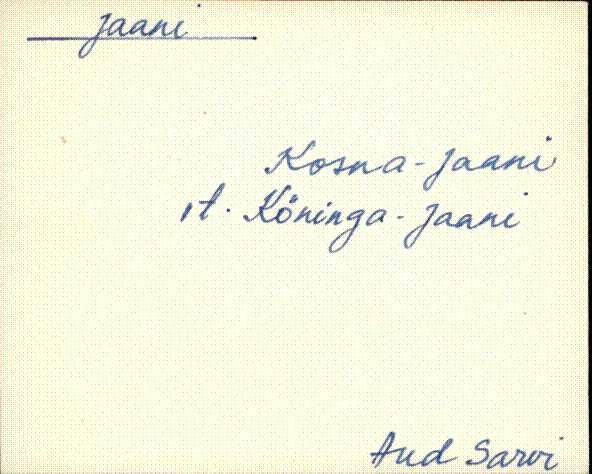 Jaani
Kosna-Jaani
vt. Köninga-Jaani
Aud Sarvi